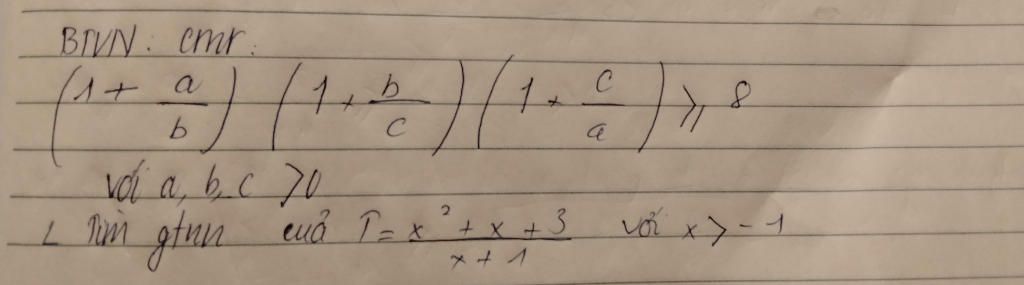 BTVN: cmr:
(1 + a/b) (1 + b/c) (1 + c/a) ⩾ 8
với a, b, c > 0
L Tìm gtnn cuả T = (x² + x + 3)/(x + 1) với x > -1